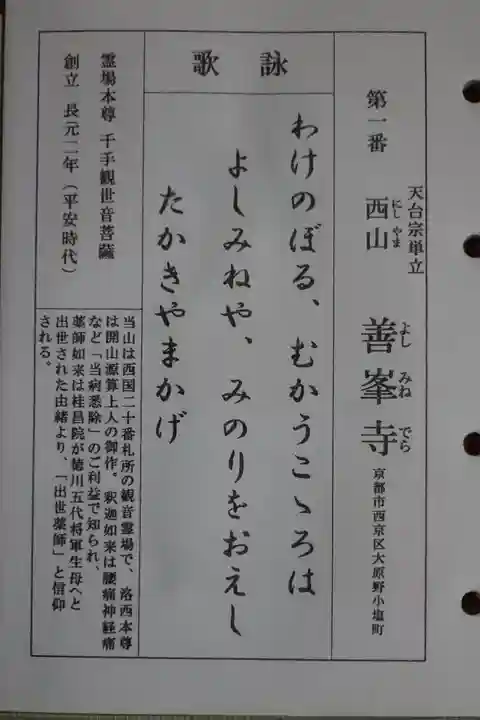 第一番
天台宗単立
西山
にし やま
善峯寺
よし みね でら
京都市西京区大原野小塩町
詠歌
わけのぼる、むかうこゝろは
よしみねや、みのりをおえし
たかきやまかげ
霊場本尊 千手観世音菩薩
創立 長元二年(平安時代)
当山は西国二十番札所の観音霊場で、洛西本尊
は開山源算上人の御作。釈迦如来は腰痛神経痛
など「当病悉除」のご利益で知られ、
薬師如来は桂昌院が徳川五代将軍生母へと
出世された由緒より、「出世薬師」と信仰
される。